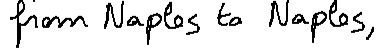 from Naples to Naples,